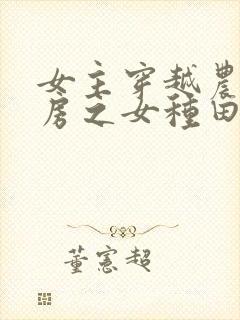 女主穿越農
房之女種田
董憲超